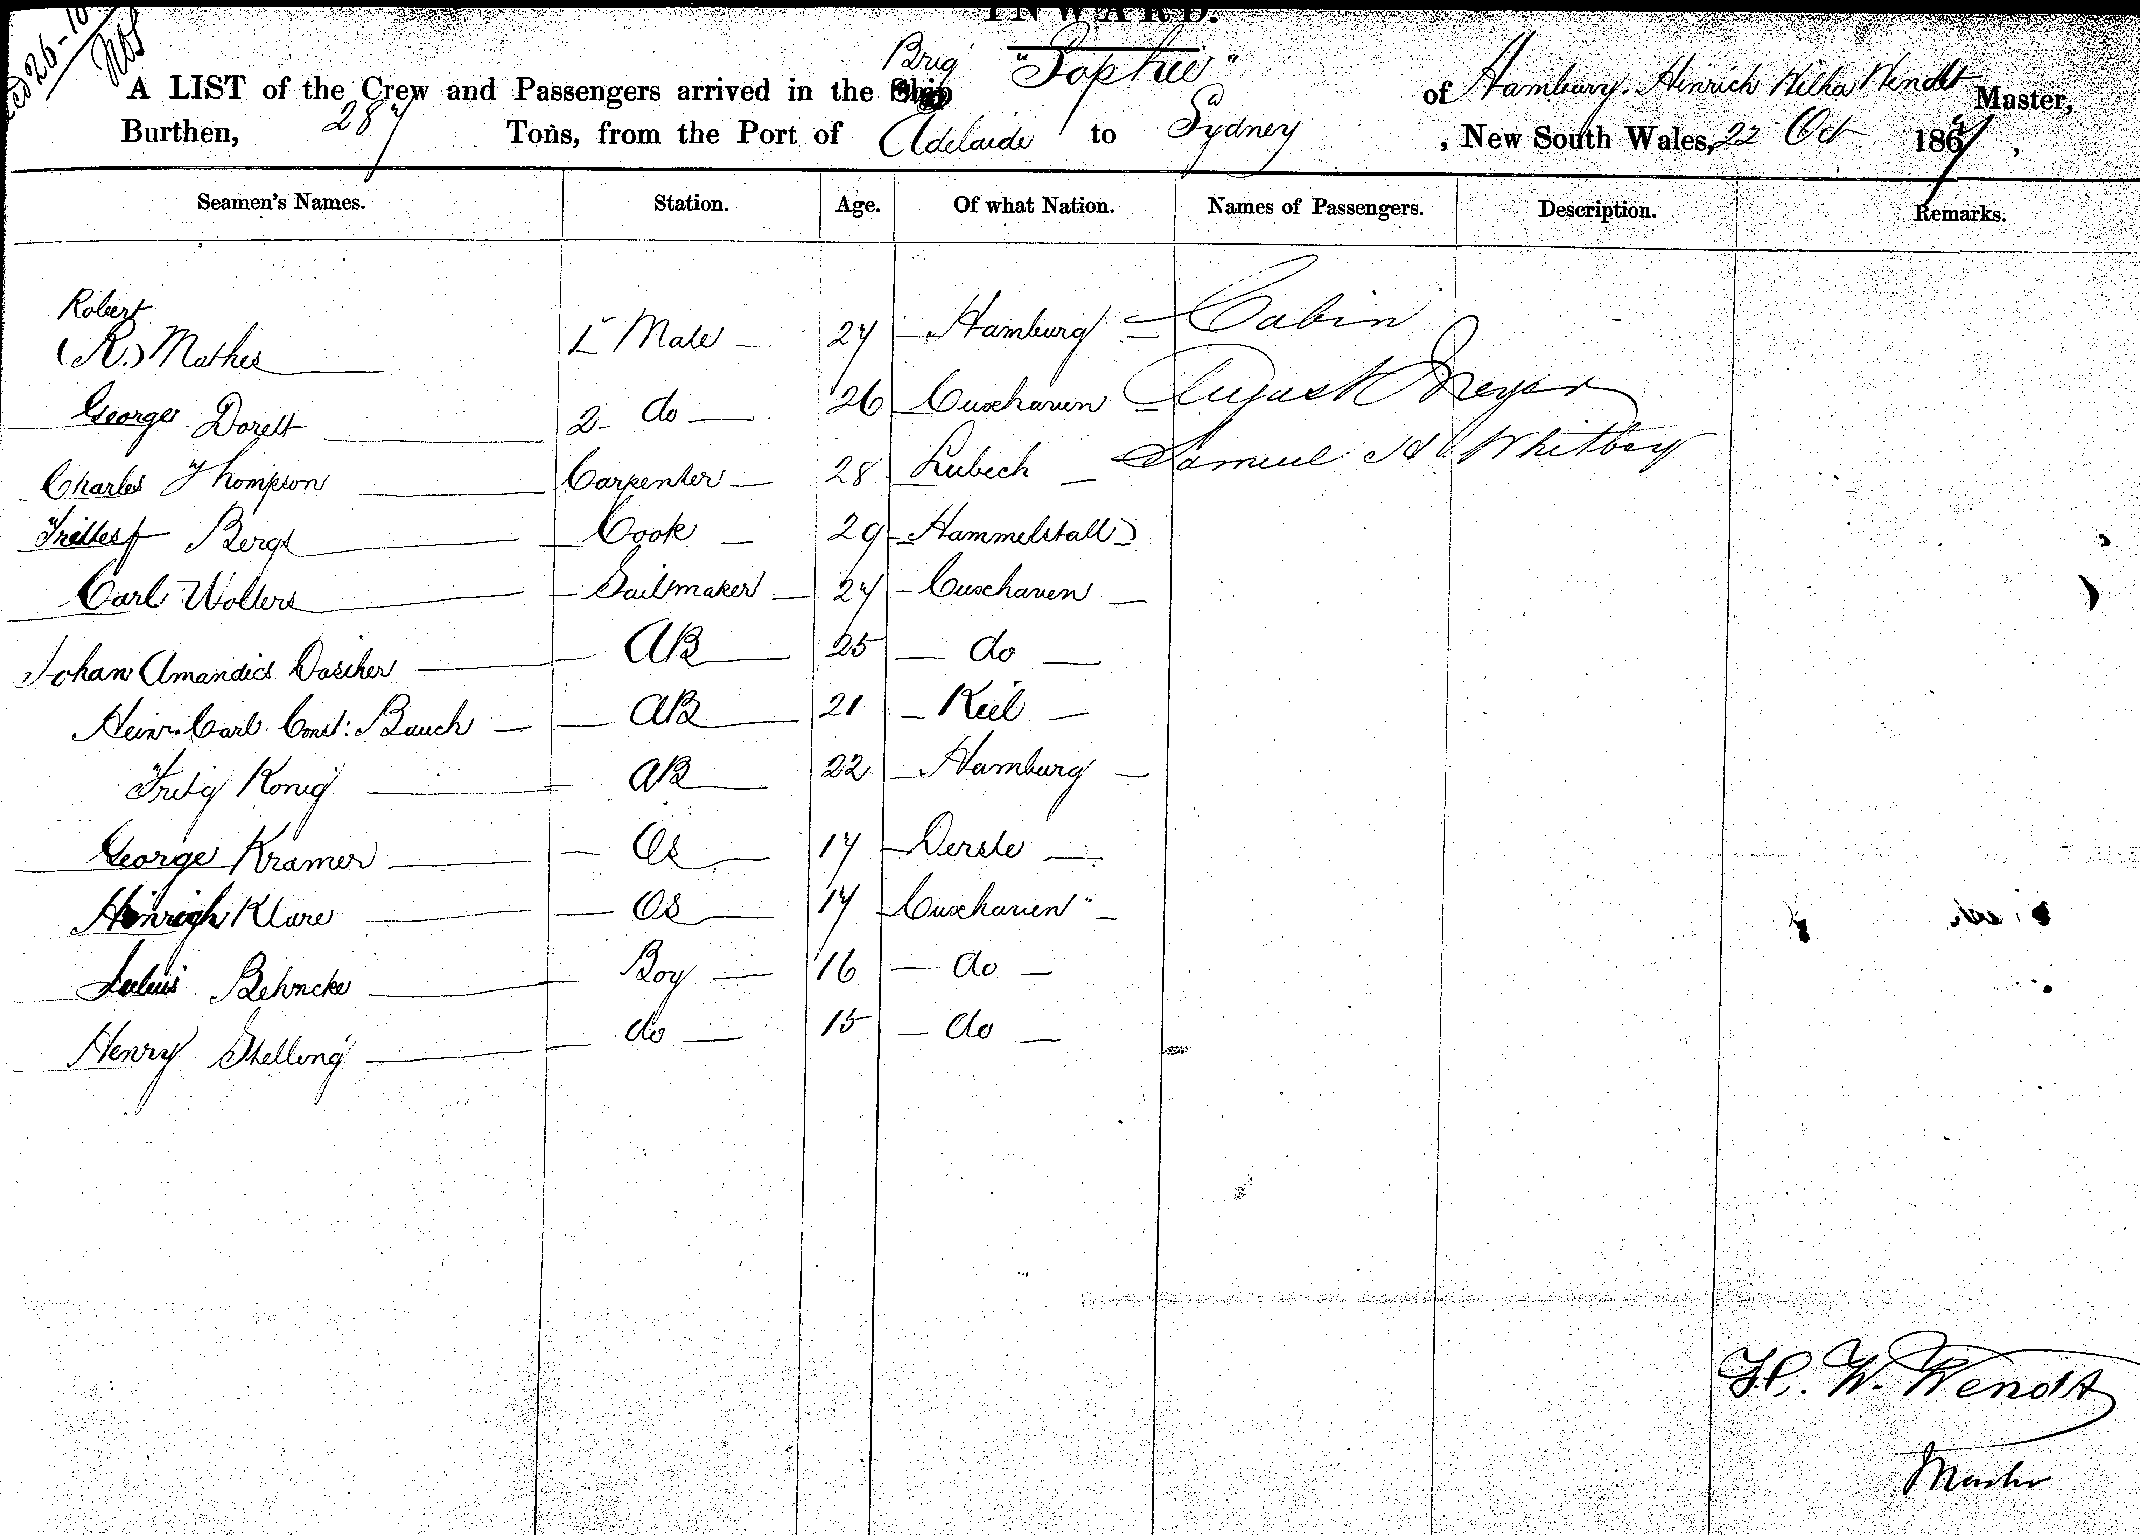 INWARD.
Brig "Sophie"
A LIST of the Crew and Passengers arrived in the Ship of Hamburg, Hinrich Wendt Master,
Burthen, 287 Tons, from the Port of Adelaide to Sydney, New South Wales, 22 Oct 1867.
Seamen's Names. Station. Age. Of what Nation. Names of Passengers. Description. Remarks.
Robert
(R.) Mathes 1 Mate 27 Hamburg Cabin
George Dorelt 2 do 26 Cuxhaven August Meyer
Charles Thompson Carpenter 28 Lubeck Samuel A Whitbey
Bergt Cook 29 Hammelstall
Carl Wolters Sailmaker 27 Cuxhaven
Johan Amandies Dascher AB 25 do
Heinr. Carl Const: Bauch AB 21 Kiel
Fritz Konig AB 22 Hamburg
George Kramer OS 17 Derste
Hinrich Klare OS 17 Cuxhaven
Julius Behncke Boy 16 do
Henry Shelling do 15 do
H. W. Wendt
Master